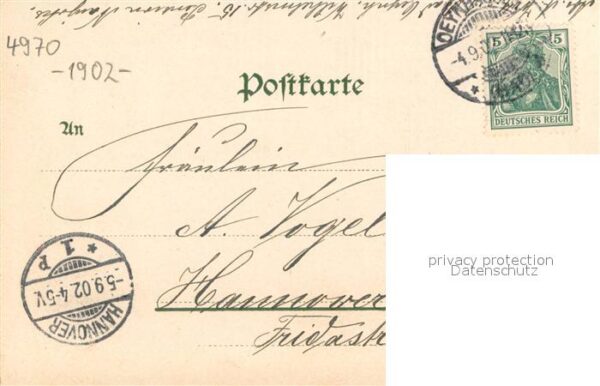 4970
-1902-
Postkarte
An
Fräulein
A. Vogel
Hannover
Fridastr
OEYNH
-4.9.0
5 5
DEUTSCHES REICH
HANNOVER
-5.9.02.4-5V.
* 1P
privacy protection
Datenschutz